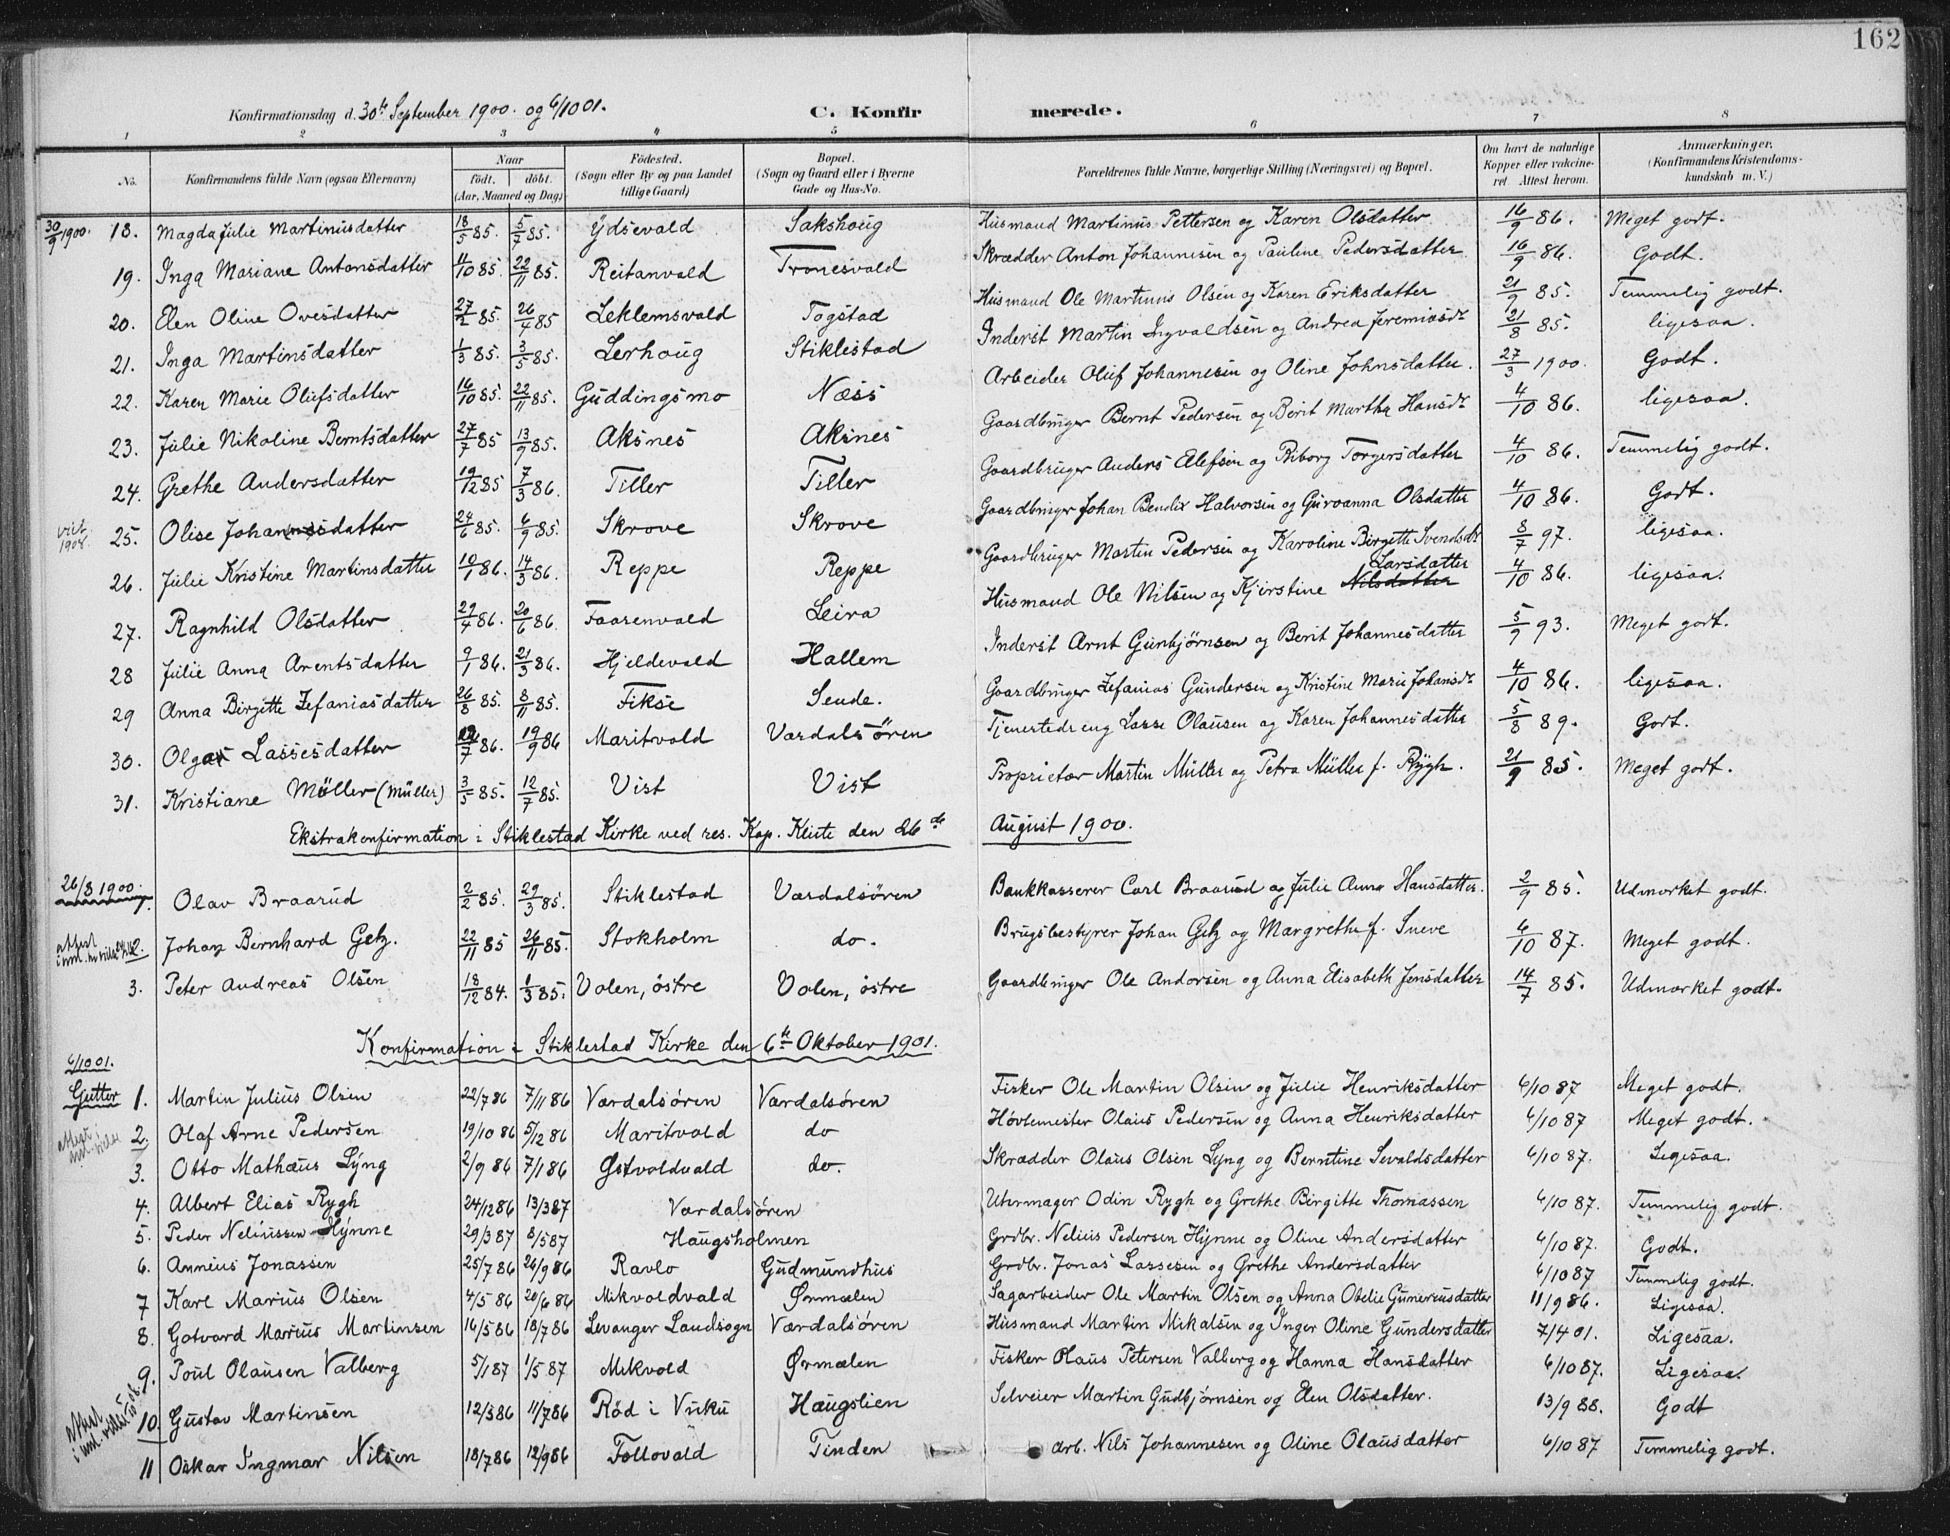 162
Konfirmationsdag d. 30te September 1900. og 6/10 01. C. Konfirmerede.
1 2 3 4 5 6 7 8
No. Konfirmandens fulde Navn (ogsaa Efternavn) Naar født. døbt. (Aar, Maaned og Dag) Fødested. (Sogn eller By og paa Landet tillige Gaard) Bopæl. (Sogn og Gaard eller i Byerne Gade og Hus-No. Forældrenes fulde Navne, borgerlige Stilling (Næringsvei) og Bopæl. Om havt de naturlige Kopper eller vakcineret. Attest herom. Anmærkninger. (Konfirmandens Kristendomskundskab m. V.)
30/9 1900. 18. Magda Julie Martinusdatter 18/5 85. 5/7 85. Ydsevald Sakshoug Husmand Martinus Pettersen og Karen Olsdatter 16/9 86. Meget godt.
19. Inga Mariane Antonsdatter 11/10 85. 22/11 85. Reitanvald Tronesvald Skrædder Anton Johannesen og Pauline Pedersdatter 16/9 86. Godt.
20. Elen Oline Ovesdatter 27/2 85. 26/4 85 Leklemsvald Togstad Husmand Ole Martinus Olsen og Karen Eriksdatter 21/9 85. Temmelig godt.
21. Inga Martinsdatter 1/3 85. 3/5 85. Lerhoug Stiklestad Inderst Martin Ingvaldsen og Andrea Jeremiasdr 21/8 85. ligesaa.
22. Karen Marie Olufsdatter 16/10 85. 22/11 85. Guddingsmo Næss Arbeider Oluf Johannesen og Oline Johnsdatter. 27/3 1900. Godt.
23. Julie Nikoline Berntsdatter 27/7 85 13/9 85. Aksnes Aksnes Gaardbruger Bernt Pedersen og Berit Martha Hansdr 4/10 86. ligesaa.
24. Grethe Andersdatter 19/12 85 7/3 86. Tiller Tiller Gaardbruger Anders Ellefsen og Riborg Torgersdatter 4/10 86. Temmelig godt.
viet 1908. 25. Olise Johannsdatter 24/6 85. 6/9 85. Skrove Skrove Gaardbruger Johan Bendix Halvorsen og Guroanna Olsdatter 4/10 86. Godt.
26. Julie Kristine Martinsdatter 10/1 86. 14/3 86. Reppe Reppe Gaardbruger Martin Pedersen og Karoline Birgitte Svendsdr 8/7 97. ligesaa.
27. Ragnhild Olsdatter 29/4 86. 20/6 86. Faarenvald Leira Husmand Ole Nilsen og Kjerstine Nilsdatter Larsdatter 4/10 86. ligesaa.
28 Julie Anna Arentsdatter 9/1 86. 21/3 86. Hjeldevald Hallem Inderst Arnt Gunbjørnsen og Berit Johannesdatter 5/9 93. Meget godt.
29 Anna Birgitte Zefaniasdatter 26/8 85. 8/11 85. Fikse Sende. Gaardbruger Zefanias Gundersen og Kristine Marie Johansdr 4/10 86. ligesaa.
30. Olga Lassesdatter 12/7 86. 19/9 86 Maritvald Værdalsören Tjenestedreng Lasse Olausen og Karen Johannesdatter 5/8 89. Godt.
31. Kristiane Møller (Müller) 3/5 85. 12/7 85. Vist Vist Proprietær Martin Müller og Petra Müller f. Rygh. 21/9 85. Meget godt.
Ekstrakonfirmation i Stiklestad Kirke ved res. Kap. Kliste den 26de August 1900.
26/8 1900. 1. Olav Braarud 2/2 85. 29/3 85. Stiklestad Værdalsören Bankkasserer Carl Braarud og Julie Anna Hansdatter. 2/9 85. Udmærket godt.
2. Johan Bernhard Getz. 22/11 85 26/11 85. Stokholm do. Brugsbestyrer Johan Getz og Margrethe f. Sneve 6/10 87. Meget godt.
3. Peter Andreas Olsen 18/12 84. 1/3 85. Volen, östre Volen, östre Gaardbruger Ole Andorsen og Anna Elisabeth Jensdatter 14/7 85. Udmærket godt.
Konfirmation i Stiklestad Kirke den 6te Oktober 1901.
6/10 01.
Gutter 1. Martin Julius Olsen 22/7 86 7/11 86 Værdalsören Værdalsören Fisker Ole Martin Olsen og Julie Henriksdatter 6/10 87 Meget godt.
2. Olaf Arne Pedersen 19/10 86 5/12 86 Maritvald do Høvlemester Olaus Pedersen og Anna Henriksdatter 6/10 87 Meget godt.
3. Otto Mathæus Lyng 2/9 86 7/1 86 Østvoldvald do. Skrædder Olaus Olsen Lyng og Berntine Sevaldsdatter 6/10 87. Ligesaa.
4. Albert Elias Rygh 24/12 86 13/3 87 Værdalsören Uhrmager Odin Rygh og Grethe Birgitte Thomassen 6/10 87. Temmelig godt.
5. Peder Neliussen Hynne 29/3 87 8/5 87 Haugsholmen Grdbr. Nelius Pedersen Hynne og Oline Andersdatter 6/10 87. Godt.
6. Annæus Jonassen 25/7 86 26/9 86 Ravlo Gudmundhus Grdbr. Jonas Lassesen og Grethe Andersdatter 6/10 87 Temmelig godt.
7 Karl Marius Olsen 4/5 86 20/6 86 Mikvoldvald Ørmælen Sagarbeider Ole Martin Olsen og Anna Otelie Gunneriusdatter 11/9 86. Ligesaa.
8. Gotvard Marius Martinsen 16/5 86 18/7 86 Levanger Landsogn Værdalsören Husmand Martin Mikalsen og Inger Oline Gundersdatter 7/4 01. Ligesaa.
9. Poul Olausen Valberg 5/1 87 1/5 87 Mikvold Ørmælen Fisker Olaus Petersen Valberg og Hanna Hansdatter 6/10 87. Ligesaa.
10. Gustav Martinsen 12/3 86 11/7 86 Röd i Vuku Haugslien Selveier Martin Gudbjørnsen og Elen Olsdatter. 13/9 88. Godt
11 Oskar Ingmar Nilsen 18/7 86 12/9 86 Follovald Tinden Arb. Nils Johannesen og Oline Olausdatter 6/10 87 Temmelig godt.